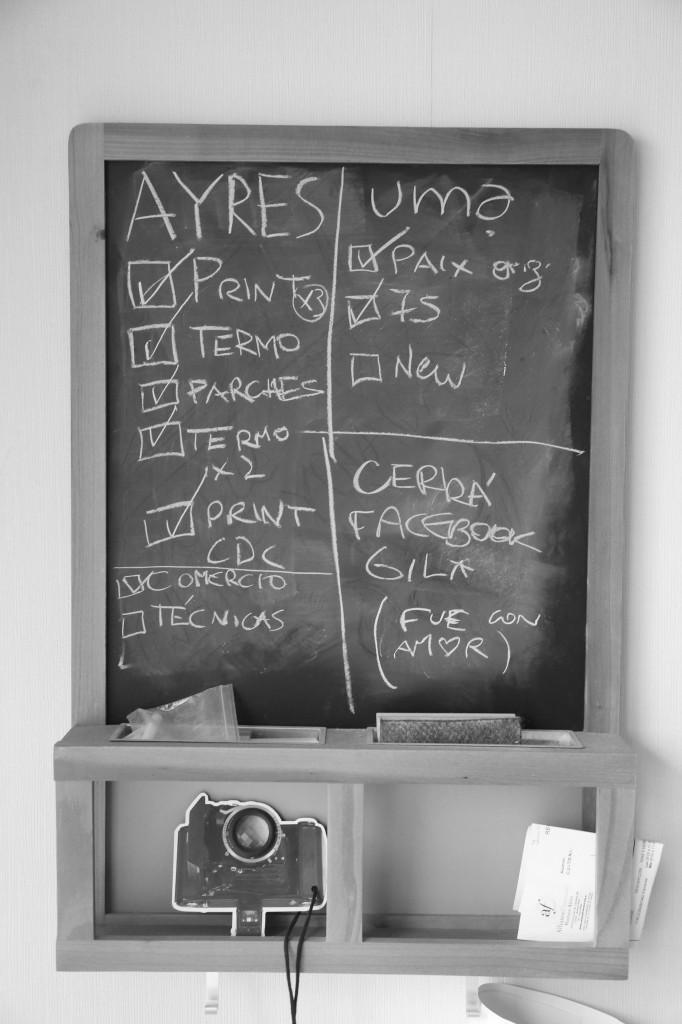 AYRES
PRINT x3
TERMO
PARCHES
TERMO
x2
PRINT
CDC
COMERCIO
TÉCNICAS
umə
PAIX orig.
75
New
CERRÁ
FACEBOOK
GILA
(FUE CON
AM♡R)
af